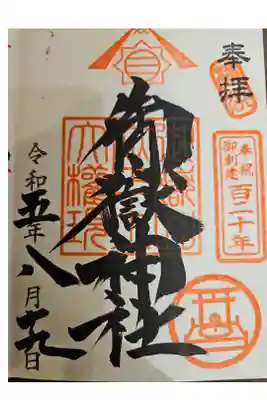 奉拝
奉祝
御創建
百二十年
御嶽神社
令和五年八月十九日